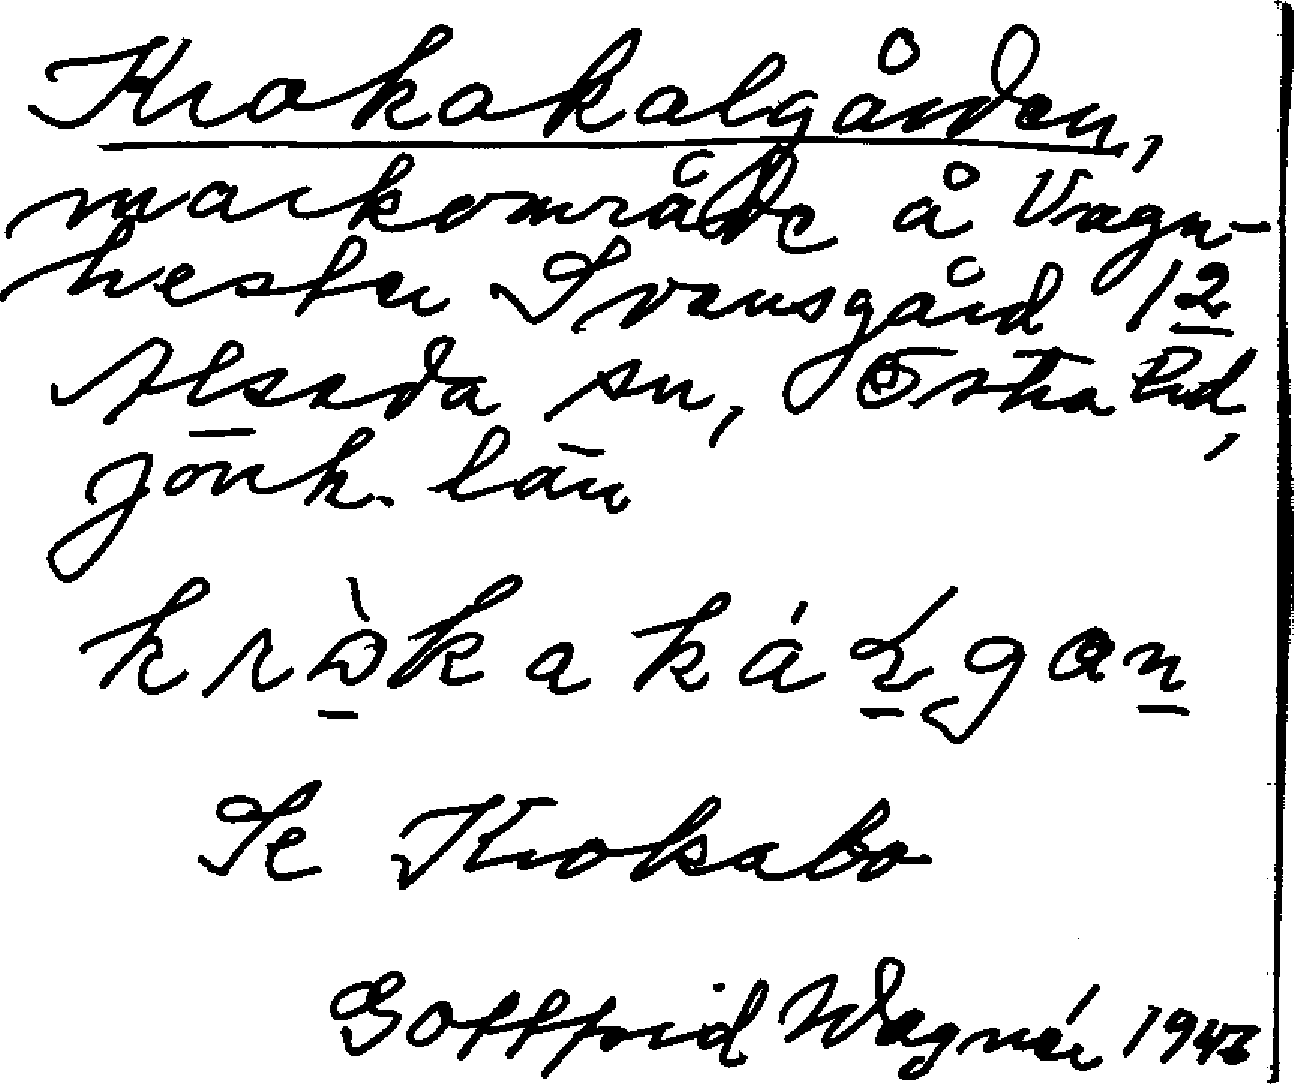 Krokakalgården,
markområde å Vagn-
hester Svensgård 12
Alseda sn, Östra hd,
Jönk. län
Se Krokabo
Gottfrid Wagnér